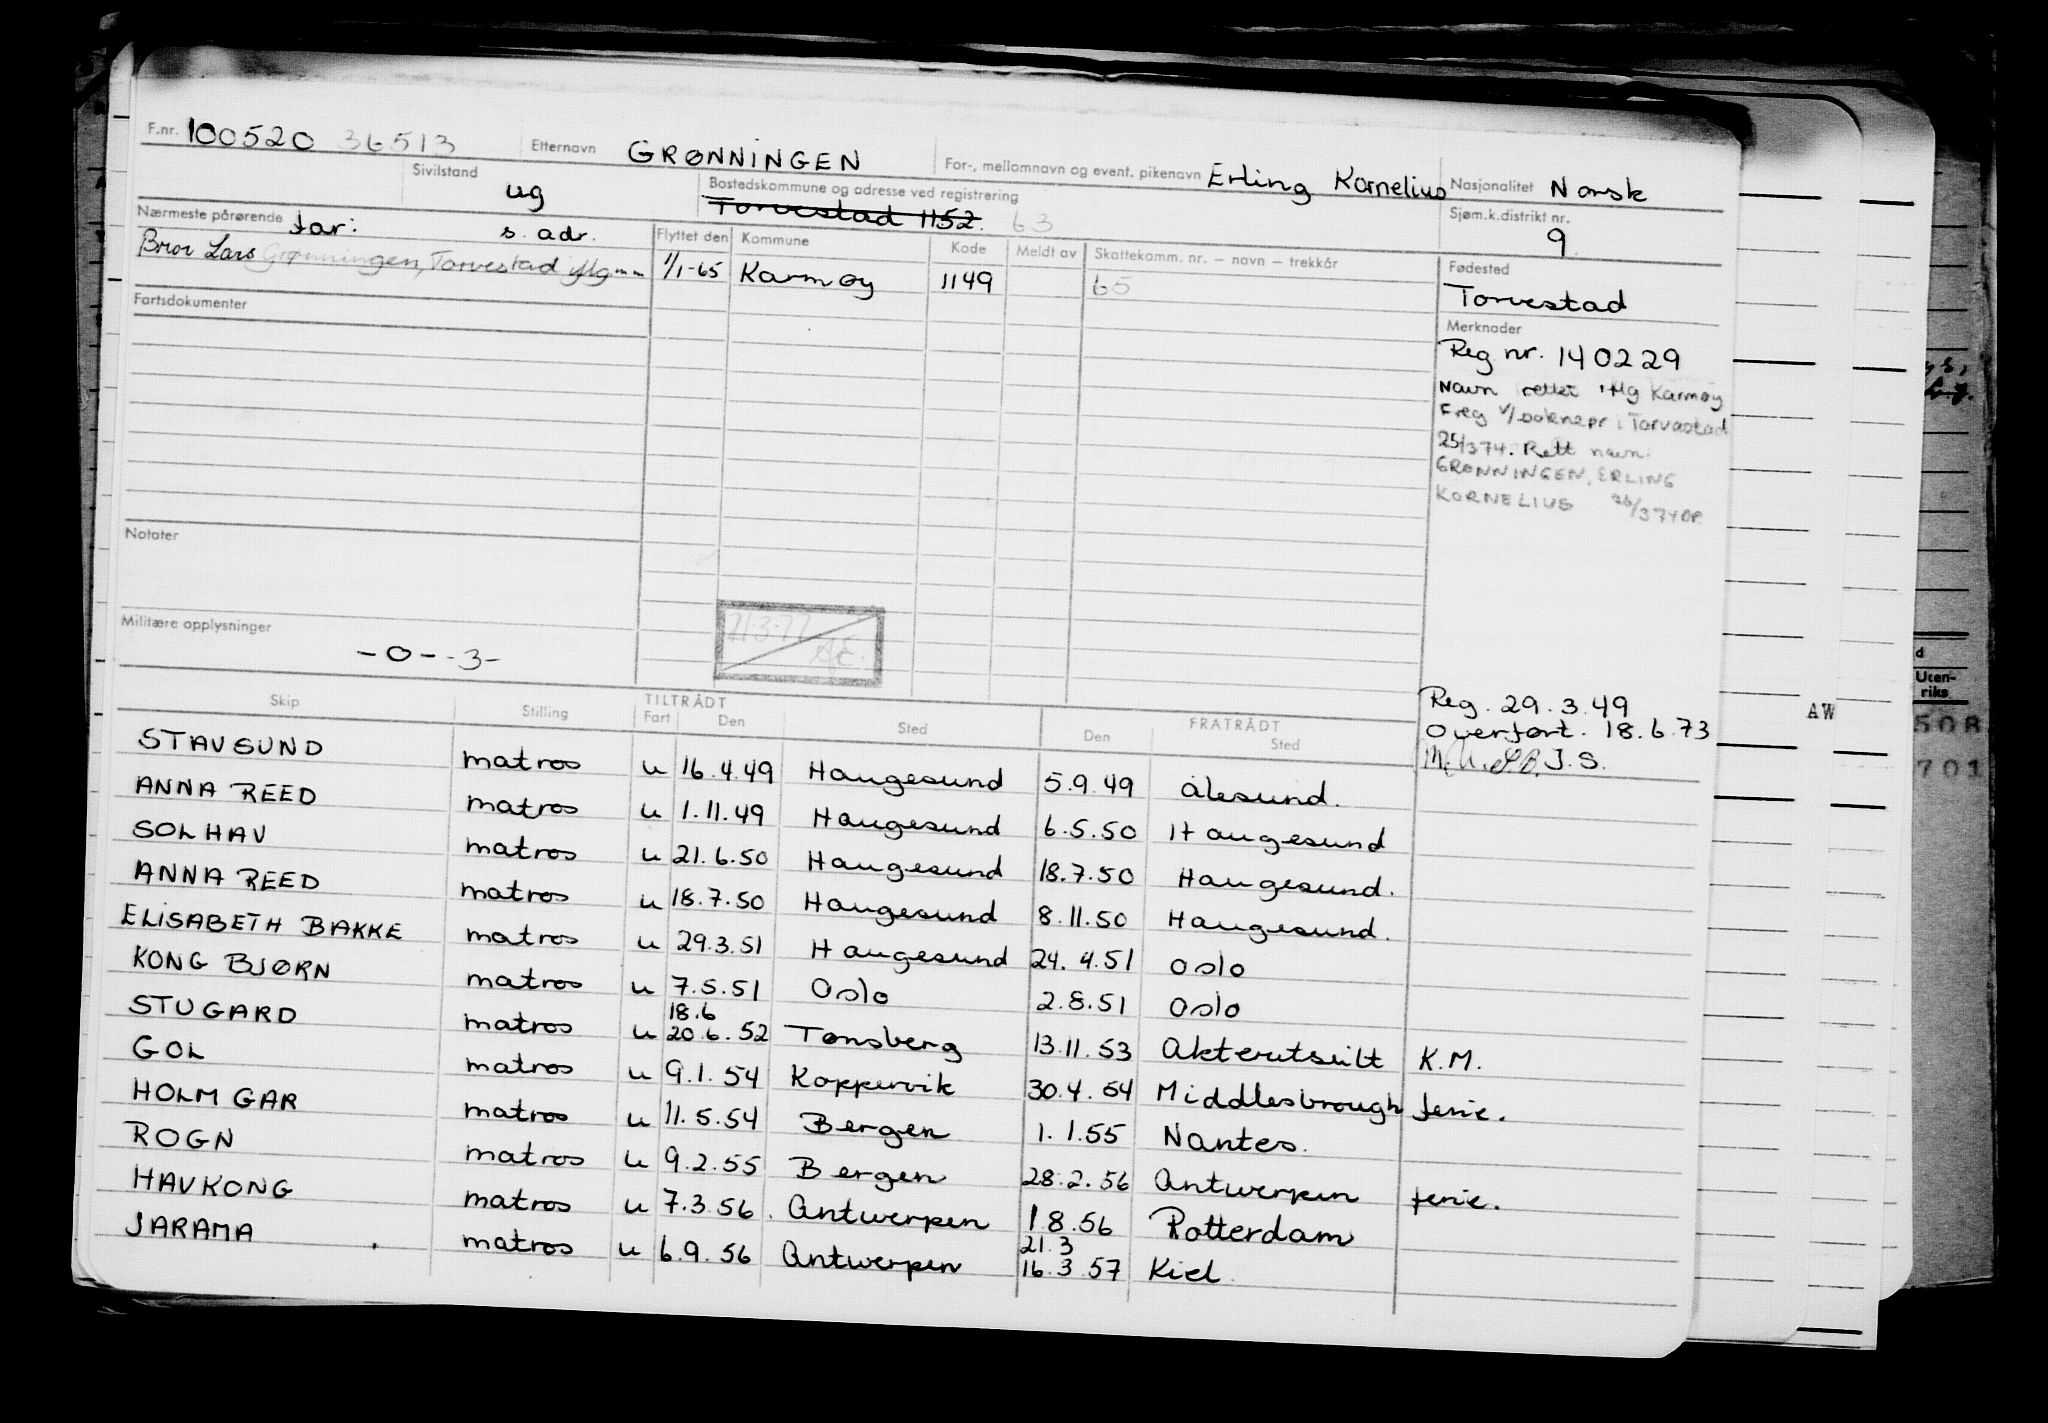 F.nr. 100520 36513 Etternavn GRØNNINGEN For-, mellomnavn og event. pikenavn Erling Kornelius Nasjonalitet Norsk
Sivilstand ug Bostedskommune og adresse ved registrering Torvestad 1152. 63 Sjøm.k.distrikt nr. 9
Nærmeste pårørende far: s. adr. Flyttet den Kommune Kode Meldt av Skattekomm. nr. – navn – trekkår Fødested
Bror Lars Grønningen, Torvestad iflg 1/1-65 Karmøy 1149 65 Torvestad
Fartsdokumenter Merknader
Reg nr. 140229
Navn rettet iflg Karmøy
Freg i Torvastad
25/3 74. Rett navn:
GRØNNINGEN, ERLING
KORNELIUS 26/3 74
Notater
Militære opplysninger
-0--3-
21.3.77
Reg. 29.3.49
Overført. 18.6.73
J.S.
Skip Stilling TILTRÅDT Fart Den Sted FRATRÅDT Den Sted
STAVSUND matros u 16.4.49 Haugesund 5.9.49 Ålesund.
ANNA REED matros u 1.11.49 Haugesund 6.5.50 Haugesund
SOLHAV matros u 21.6.50 Haugesund 18.7.50 Haugesund.
ANNA REED matros u 18.7.50 Haugesund 8.11.50 Haugesund.
ELISABETH BAKKE matros u 29.3.51 Haugesund 24.4.51 Oslo
KONG BJØRN matros u 7.5.51 Oslo 2.8.51 Oslo
18.6
STUGARD matros u 20.6.52 Tønsberg 13.11.53 Akterutseilt K.M.
GOL matros u 9.1.54 Koppervik 30.4.54 Middlesbrough ferie.
HOLMGAR matros u 11.5.54 Bergen 1.1.55 Nantes.
ROGN matros u 9.2.55 Bergen 28.2.56 Antwerpen ferie.
HAVKONG matros u 7.3.56. Antwerpen 1.8.56 Rotterdam
21.3
JARAMA matros u 6.9.56 Antwerpen 16.3.57 Kiel.
AW
d
Uten-
riks
508
701